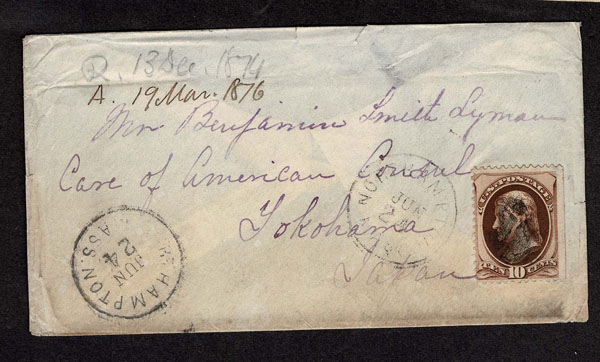 R. 13 Dec. 1874
A. 19 Mar. 1876
Mr Benjamin Smith Lyman
Care of American Consul
Yokohama
Japan
HAMPTON
MASS.
JUN
24
NORTHAM
JUN
24
U.S. POSTAGE
TEN 10 CENTS